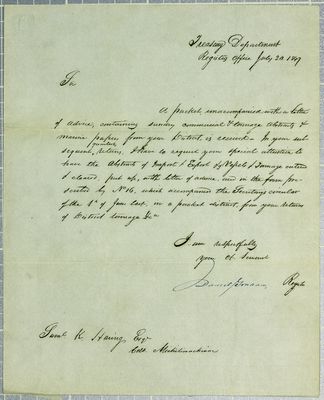 Treasury Department
Register's Office July 20. 1849
Sir
A packet unaccompanied with a letter
of advice, containing sundry commercial & tonnage abstracts &
marine papers from your District is received. In your sub
sequent quarterly returns, I have to request your special attention to
have the Abstracts of Import & Export & of Vessels & Tonnage entered
& cleared, put up, with letter of advice, and in the form pre-
scribed by No 16, which accompanied the Secretary's circular
of the 1st of June last, in a packet distinct from your returns
of District tonnage &c
I am respectfully
your Ob. Servant
Daniel Graham Register
Saml K. Haring, Esqr
Coll. Michilimackinac